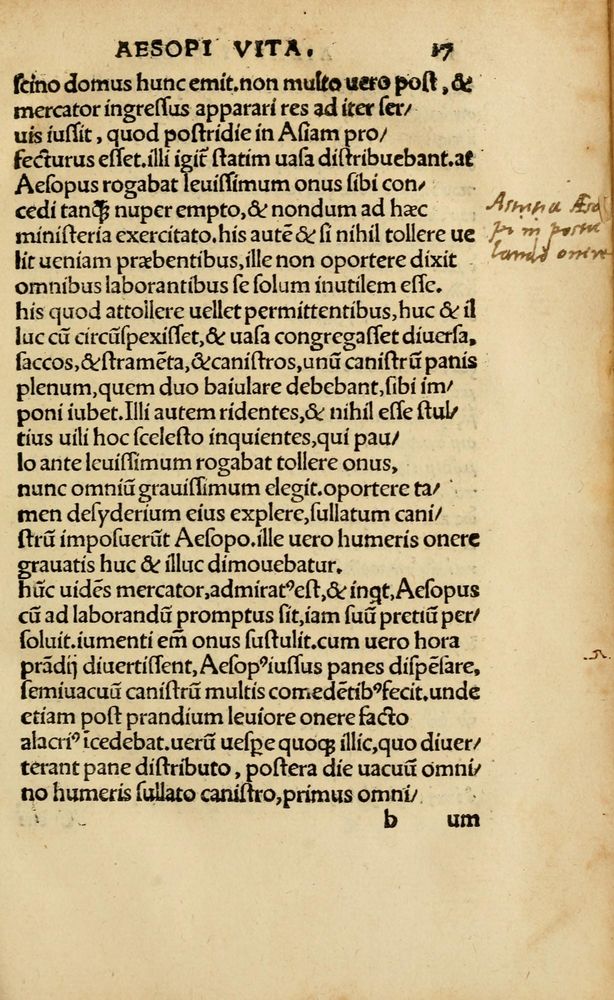 AESOPI VITA. 17
scino domus hunc emit. non multo uero post, &
mercator ingressus apparari res ad iter ser/
uis iussit, quod postridie in Asiam pro/
fecturus esset. illi igit̃ statim uasa distribuebant. at
Aesopus rogabat leuissimum onus sibi con/
cedi tanꝙ nuper empto, & nondum ad hæc
ministeria exercitato. his autẽ & si nihil tollere ue
lit ueniam præbentibus, ille non oportere dixit
omnibus laborantibus se solum inutilem esse.
his quod attollere uellet permittentibus, huc & il
luc cũ circũspexisset, & uasa congregasset diuersa,
saccos, & stramẽta, & canistros, unũ canistrũ panis
plenum, quem duo baiulare debebant, sibi im/
poni iubet. Illi autem ridentes, & nihil esse stul/
tius uili hoc scelesto inquientes, qui pau/
lo ante leuissimum rogabat tollere onus,
nunc omniũ grauissimum elegit. oportere ta/
men desyderium eius explere, sullatum cani/
strũ imposuerũt Aesopo. ille uero humeris onere
grauatis huc & illuc dimouebatur.
hũc uidẽs mercator, admiratꝰ est, & inqt, Aesopus
cũ ad laborandũ promptus sit, iam suũ pretiũ per/
soluit. iumenti em̃ onus sustulit. cum uero hora
prãdij diuertissent, Aesopꝰ iussus panes dispẽsare,
semiuacuũ canistrũ multis comedẽtibꝰ fecit. unde
etiam post prandium leuiore onere facto
alacriꝰ ĩcedebat. uerũ uespe quoqꝫ illic, quo diuer/
terant pane distributo, postera die uacuũ omni/
no humeris sullato canistro, primus omni/
b um
Astutia Æso
pi in postu
lando onere